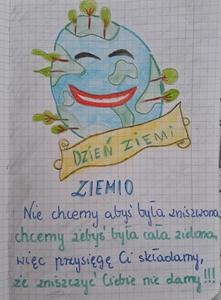 DZIEŃ ZIEMI
ZIEMIO
Nie chcemy abyś była zniszwona,
chcemy żebyś była cała zielona,
więc przysięgę Ci składamy,
że zniszczyć Ciebie nie damy!!!